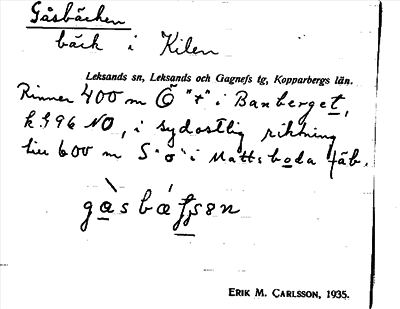 Gåsbäcken
bäck i Kilen
Leksands sn, Leksands och Gagnefs tg, Kopparbergs län.
Rinner 400 m Ö "+" i Banberget,
k. 396 NO, i sydostlig riktning
till 600 m S "o" i Mattsboda fäb.
ERIK M. CARLSSON, 1935.